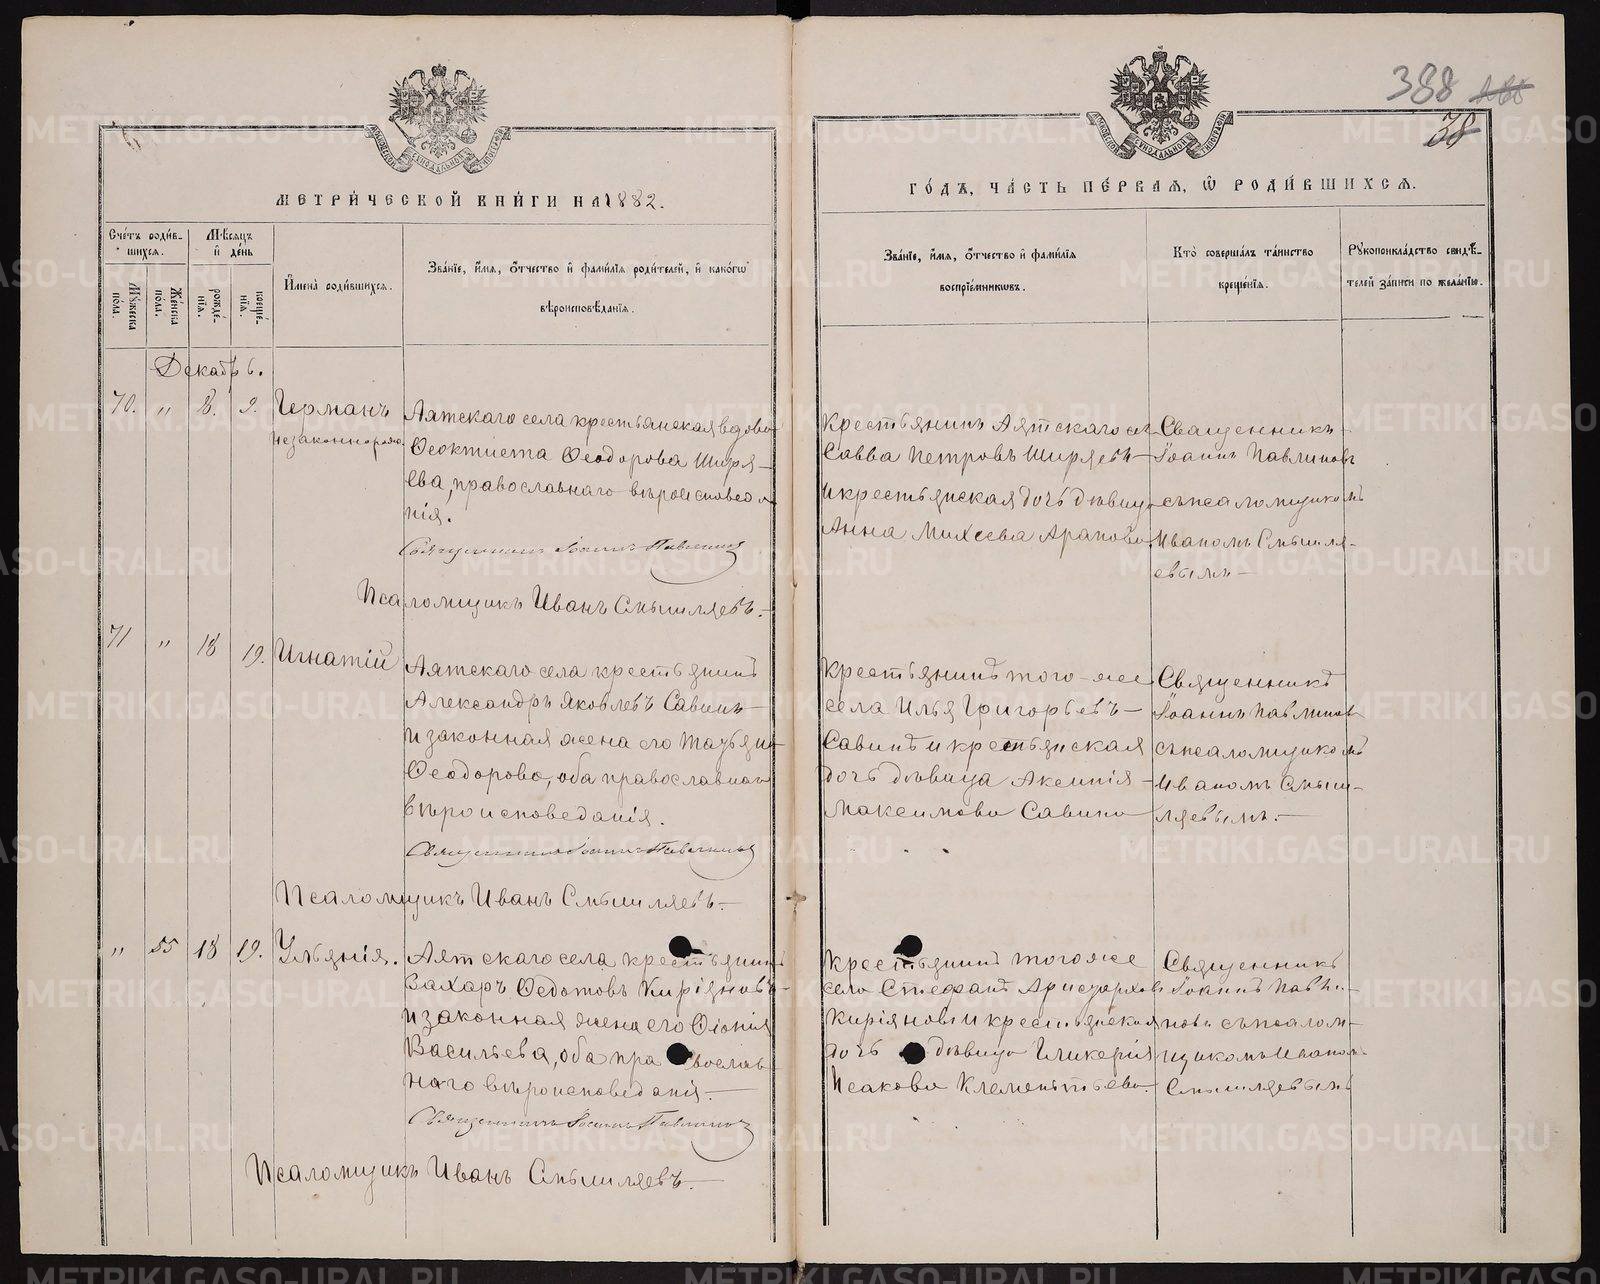 388
38
МЕТРИ́ЧЕСКОЙ КНИ́ГИ НА 1882.
ГО́ДЪ, ЧА́СТЬ ПЕ́РВАЯ, Ѡ РОДИ́ВШИХСЯ.
Сче́тъ роди́в-
шихся.
Мѣ́сяцъ
и҆ де́нь
Мꙋ́жеска
пола.
Же́нска
пола.
рожде́-
нїя.
креще́-
нїя.
И҆мена̀ роди́вшихся.
Зва́нїе, и҆́мя, ѻ҆́тчество и҆ фами́лїя роди́телей, и҆ како́гѡ
вѣроисповѣ́данїя.
Зва́нїе, и҆́мя, ѻ҆́тчество и҆ фами́лїя
воспрїе́мникѡвъ.
Кто̀ соверша́лъ та́инство
креще́нїя.
Рꙋкоприкла́дство свидѣ́-
телей за́писи по жела́нїю.
Декабрь.
70. " 8. 9. Германъ
незаконнорож.
Аятскаго села крестьянская вдова
Ѳеоктиста Ѳеодорова Ширя-
ева, православнаго вѣроисповеда
нія.
Священникъ Іоаннъ Павлиновъ
Псаломщикъ Иванъ Смышляевъ.
Крестьянинъ Аятскаго се
Савва Петровъ Ширяевъ
и крестьянская дочь дѣвица
Анна Михеева Арапова
Священникъ
Іоаннъ Павлиновъ
съ псаломщикомъ
Иваномъ Смышля-
евымъ
71 " 18 19. Игнатій
Аятскаго села крестьянинъ
Александръ Яковлевъ Савинъ
и законная жена его
Ѳеодорова, оба православнаго
вѣроисповеданія.
Священникъ Іоаннъ Павлиновъ
Псаломщикъ Иванъ Смышляевъ.
Крестьянинъ того-же
села Илья Григорьевъ
Савинъ и крестьянская
дочь дѣвица Аксинія
Максимова Савина
Священникъ
Іоаннъ Павлиновъ
съ псаломщикомъ
Иваномъ Смыш-
ляевымъ.
" 55 18 19. Ульянія.
Аятскаго села крестьянинъ
Захаръ Ѳедотовъ Киріяновъ
и законная жена его Ѳіонія
Васильева, оба православ-
наго вѣроисповеданія.
Священникъ Іоаннъ Павлиновъ
Псаломщикъ Иванъ Смышляевъ.
Крестьянинъ тогоже
села Стефанъ Аристархов
Киріяновъ и крестьянская
дочь дѣвица Гликерія
Исакова Клементьева
Священникъ
Іоаннъ Павли-
новъ съ псалом-
щикомъ Иваном
Смышляевымъ